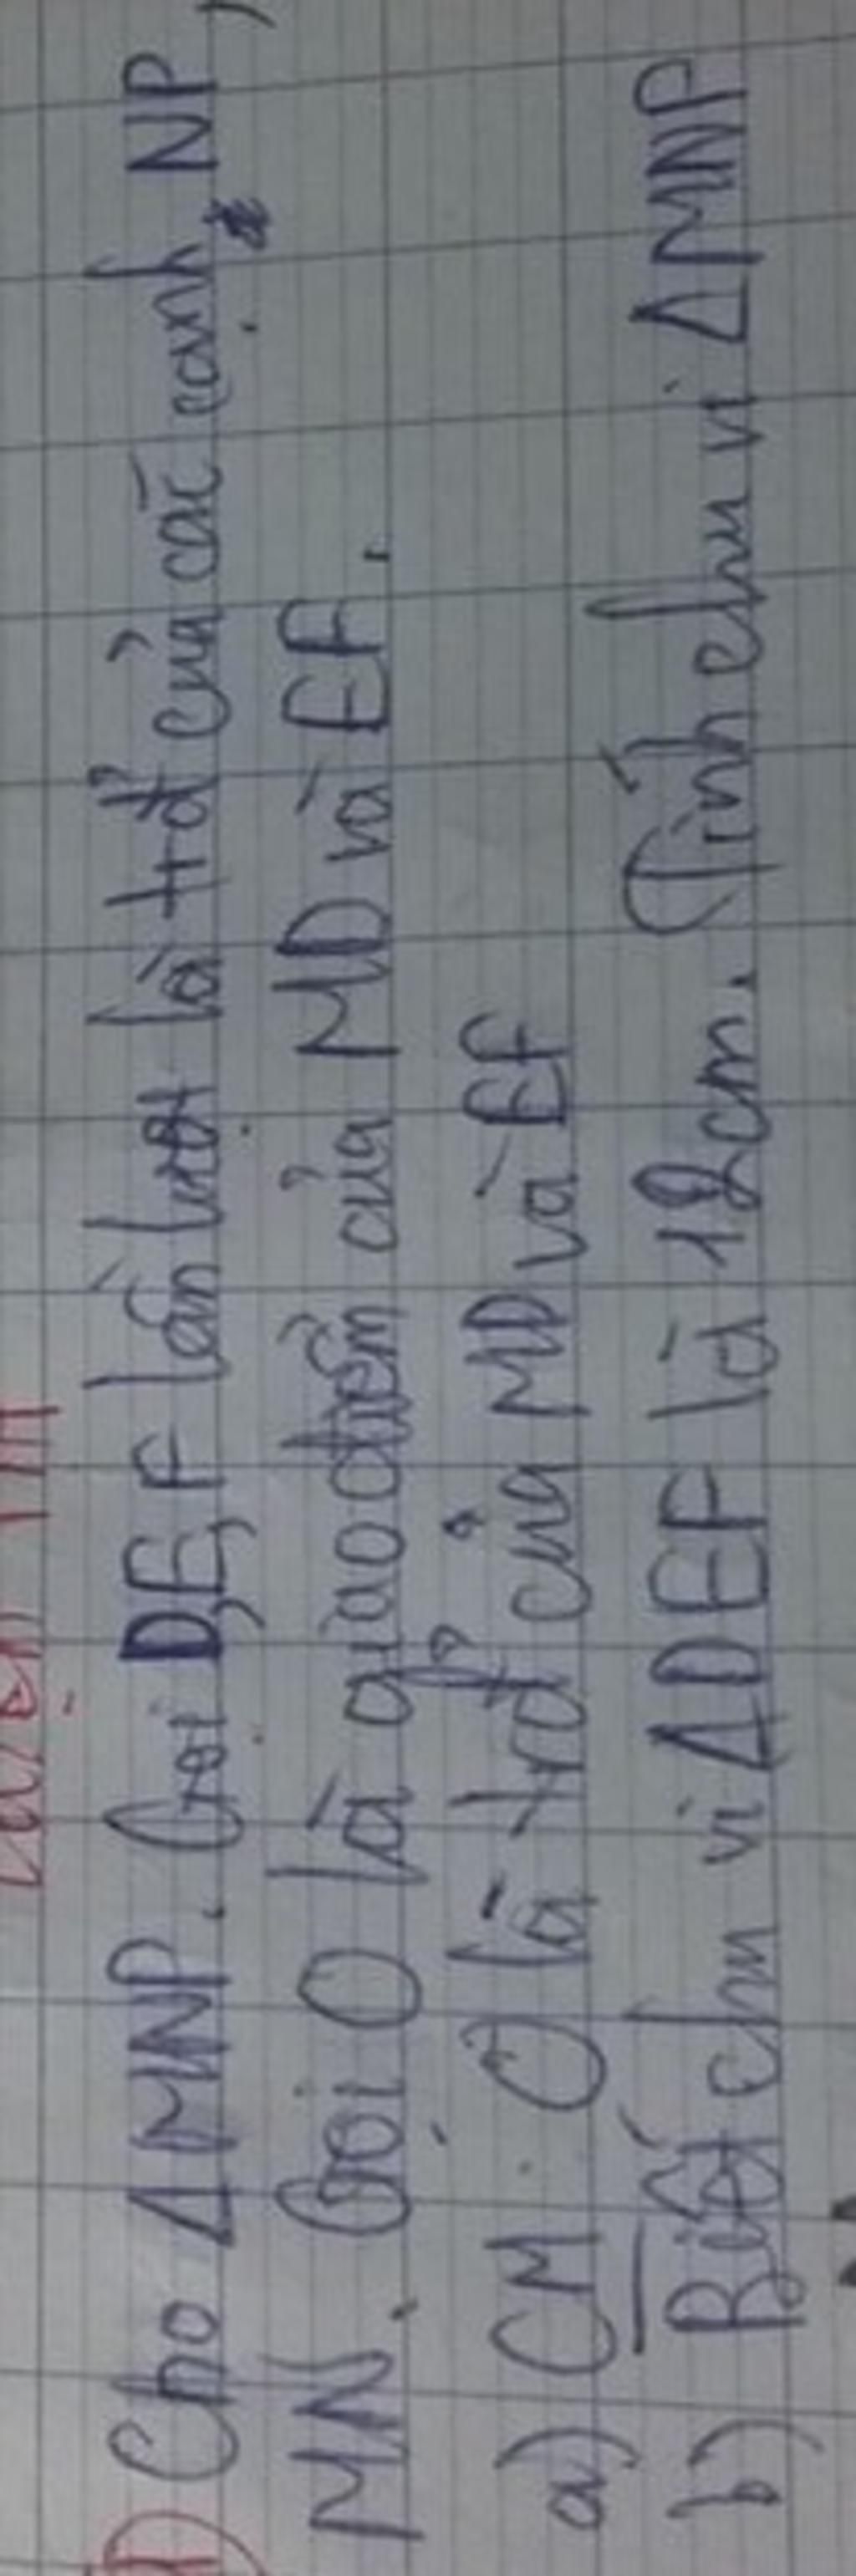 1) Cho Δ MNP. Gọi D, E, F lần lượt là tđ của các cạnh NP,
MN. Gọi O là giao điểm của MD và EF.
a) CM: O là trđ của MD và EF
b) Biết chu vi ΔDEF là 12cm. Tính chu vi ΔMNP